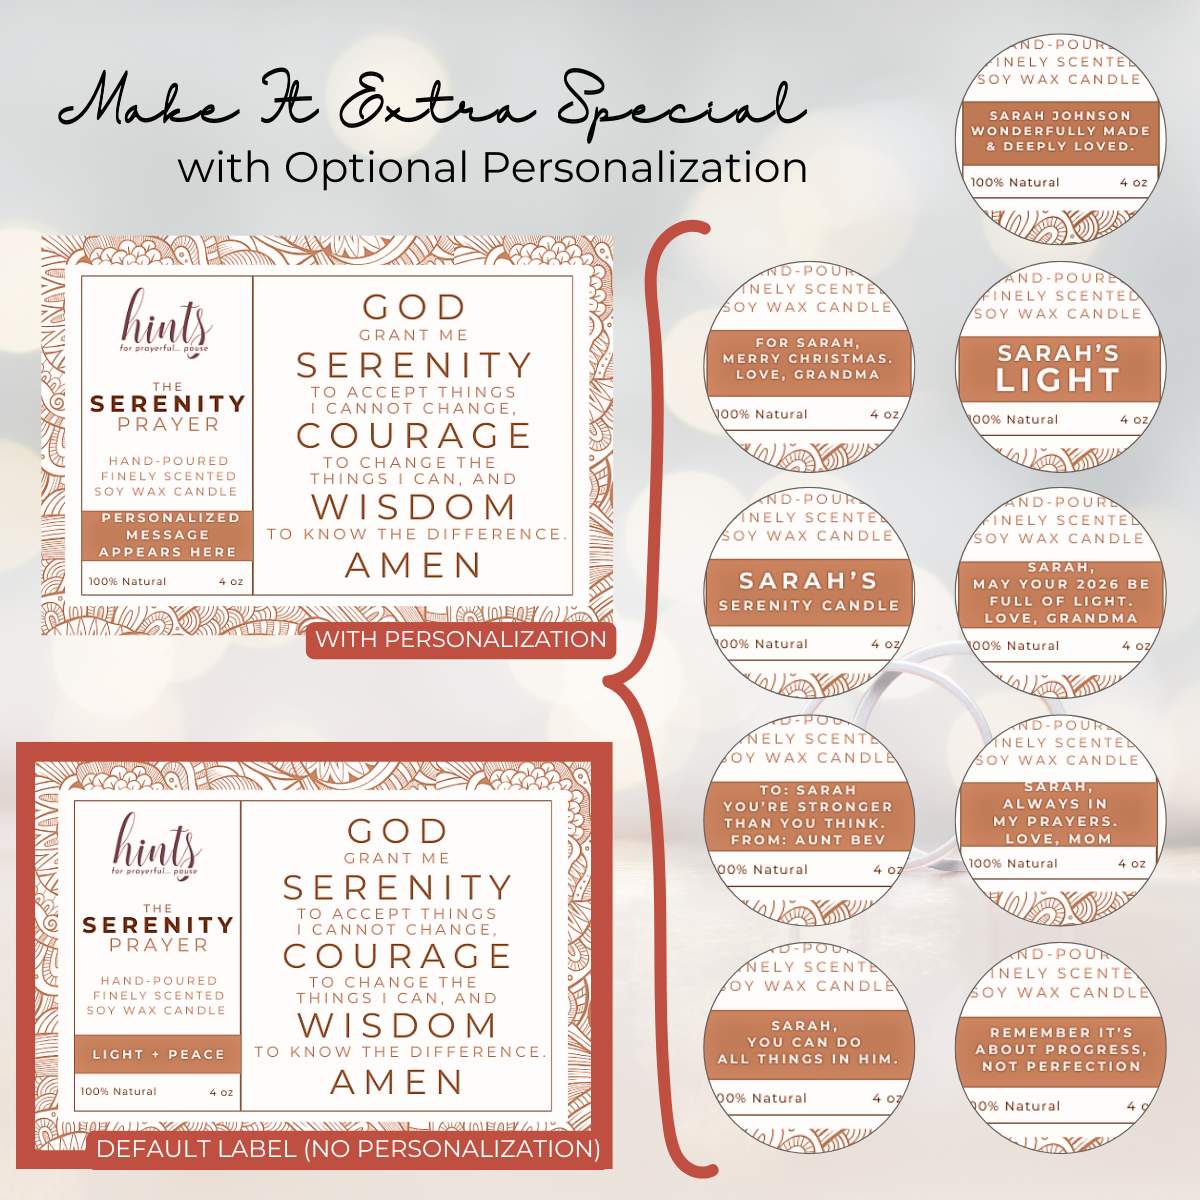 Make It Extra Special
with Optional Personalization
hints
for prayerful... pause
THE
SERENITY
PRAYER
HAND-POURED
FINELY SCENTED
SOY WAX CANDLE
PERSONALIZED
MESSAGE
APPEARS HERE
100% Natural 4 oz
GOD
GRANT ME
SERENITY
TO ACCEPT THINGS
I CANNOT CHANGE,
COURAGE
TO CHANGE THE
THINGS I CAN, AND
WISDOM
TO KNOW THE DIFFERENCE.
AMEN
WITH PERSONALIZATION
hints
for prayerful... pause
THE
SERENITY
PRAYER
HAND-POURED
FINELY SCENTED
SOY WAX CANDLE
LIGHT + PEACE
100% Natural 4 oz
GOD
GRANT ME
SERENITY
TO ACCEPT THINGS
I CANNOT CHANGE,
COURAGE
TO CHANGE THE
THINGS I CAN, AND
WISDOM
TO KNOW THE DIFFERENCE.
AMEN
DEFAULT LABEL (NO PERSONALIZATION)
AND-POURE
FINELY SCENTED
SOY WAX CANDLE
SARAH JOHNSON
WONDERFULLY MADE
& DEEPLY LOVED.
100% Natural 4 oz
ND-POUR
INELY SCENTE
SOY WAX CANDLE
FOR SARAH,
MERRY CHRISTMAS.
LOVE, GRANDMA
100% Natural 4 oz
AND-POURE
FINELY SCENTED
SOY WAX CANDLE
SARAH'S
LIGHT
100% Natural 4 oz
ND-POUR
INELY SCENTE
SOY WAX CANDLE
SARAH'S
SERENITY CANDLE
100% Natural 4 oz
AND-POURE
FINELY SCENTED
SOY WAX CANDLE
SARAH,
MAY YOUR 2026 BE
FULL OF LIGHT.
LOVE, GRANDMA
100% Natural 4 oz
ND-POU
INELY SCENTE
SOY WAX CANDLE
TO: SARAH
YOU'RE STRONGER
THAN YOU THINK.
FROM: AUNT BEV
00% Natural 4 oz
ND-POURE
FINELY SCENTED
SOY WAX CANDLE
SARAH,
ALWAYS IN
MY PRAYERS.
LOVE, MOM
100% Natural 4 oz
ND-POUR
INELY SCENTE
OY WAX CANDLE
SARAH,
YOU CAN DO
ALL THINGS IN HIM.
00% Natural 4 oz
ND-POUR
INELY SCENTED
SOY WAX CANDLE
REMEMBER IT'S
ABOUT PROGRESS,
NOT PERFECTION
00% Natural 4 o